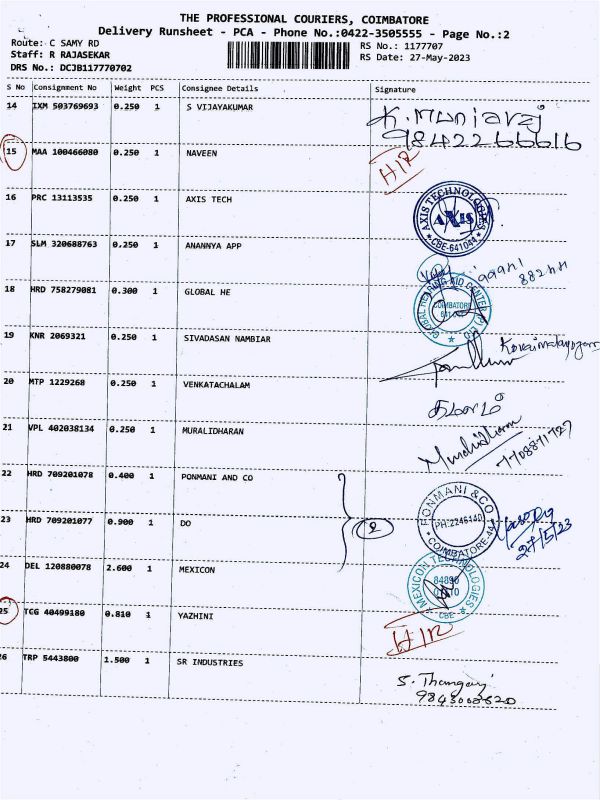 THE PROFESSIONAL COURIERS, COIMBATORE
Delivery Runsheet - PCA - Phone No.:0422-3505555 - Page No.:2
Route: C SAMY RD RS No.: 1177707
Staff: R RAJASEKAR RS Date: 27-May-2023
DRS No.: DCJB117770702
S No Consignment No Weight PCS Consignee Details Signature
14 IXM 503769693 0.250 1 S VIJAYAKUMAR K. Muniaraj
9842266616
15 MAA 100466080 0.250 1 NAVEEN HIR
16 PRC 13113535 0.250 1 AXIS TECH AXIS TECHNOLOGIES AXIS CBE-641044
17 SLM 320688763 0.250 1 ANANNYA APP
18 HRD 758279081 0.300 1 GLOBAL HE GLOBAL HEARING AID CENTER (P) LTD COIMBATORE
19 KNR 2069321 0.250 1 SIVADASAN NAMBIAR
20 MTP 1229268 0.250 1 VENKATACHALAM
21 VPL 402038134 0.250 1 MURALIDHARAN Muralidharan
7708871727
22 HRD 709201078 0.400 1 PONMANI AND CO PONMANI & CO PH:2246140 COIMBATORE-44
23 HRD 709201077 0.900 1 DO 2 27/5/23
24 DEL 120880078 2.600 1 MEXICON MEXICON TECHNOLOGIES 84890 CBE
25 TCG 40499180 0.810 1 YAZHINI HIR
26 TRP 5443800 1.500 1 SR INDUSTRIES S. Thangaraj